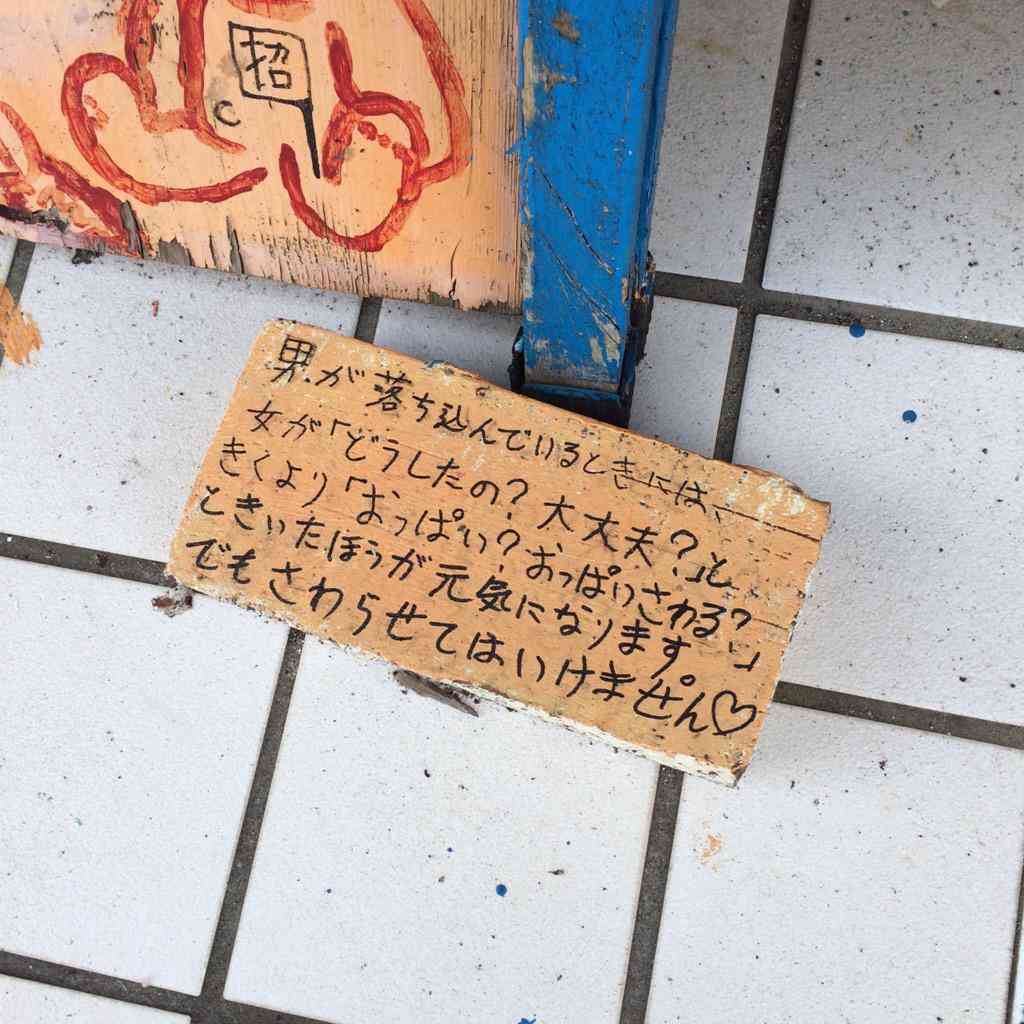 招
男が落ち込んでいるときには、
女が「どうしたの？大丈夫？」と
きくより「おっぱい？おっぱいさわる？」
ときいたほうが元気になります。
でもさわらせてはいけません♡